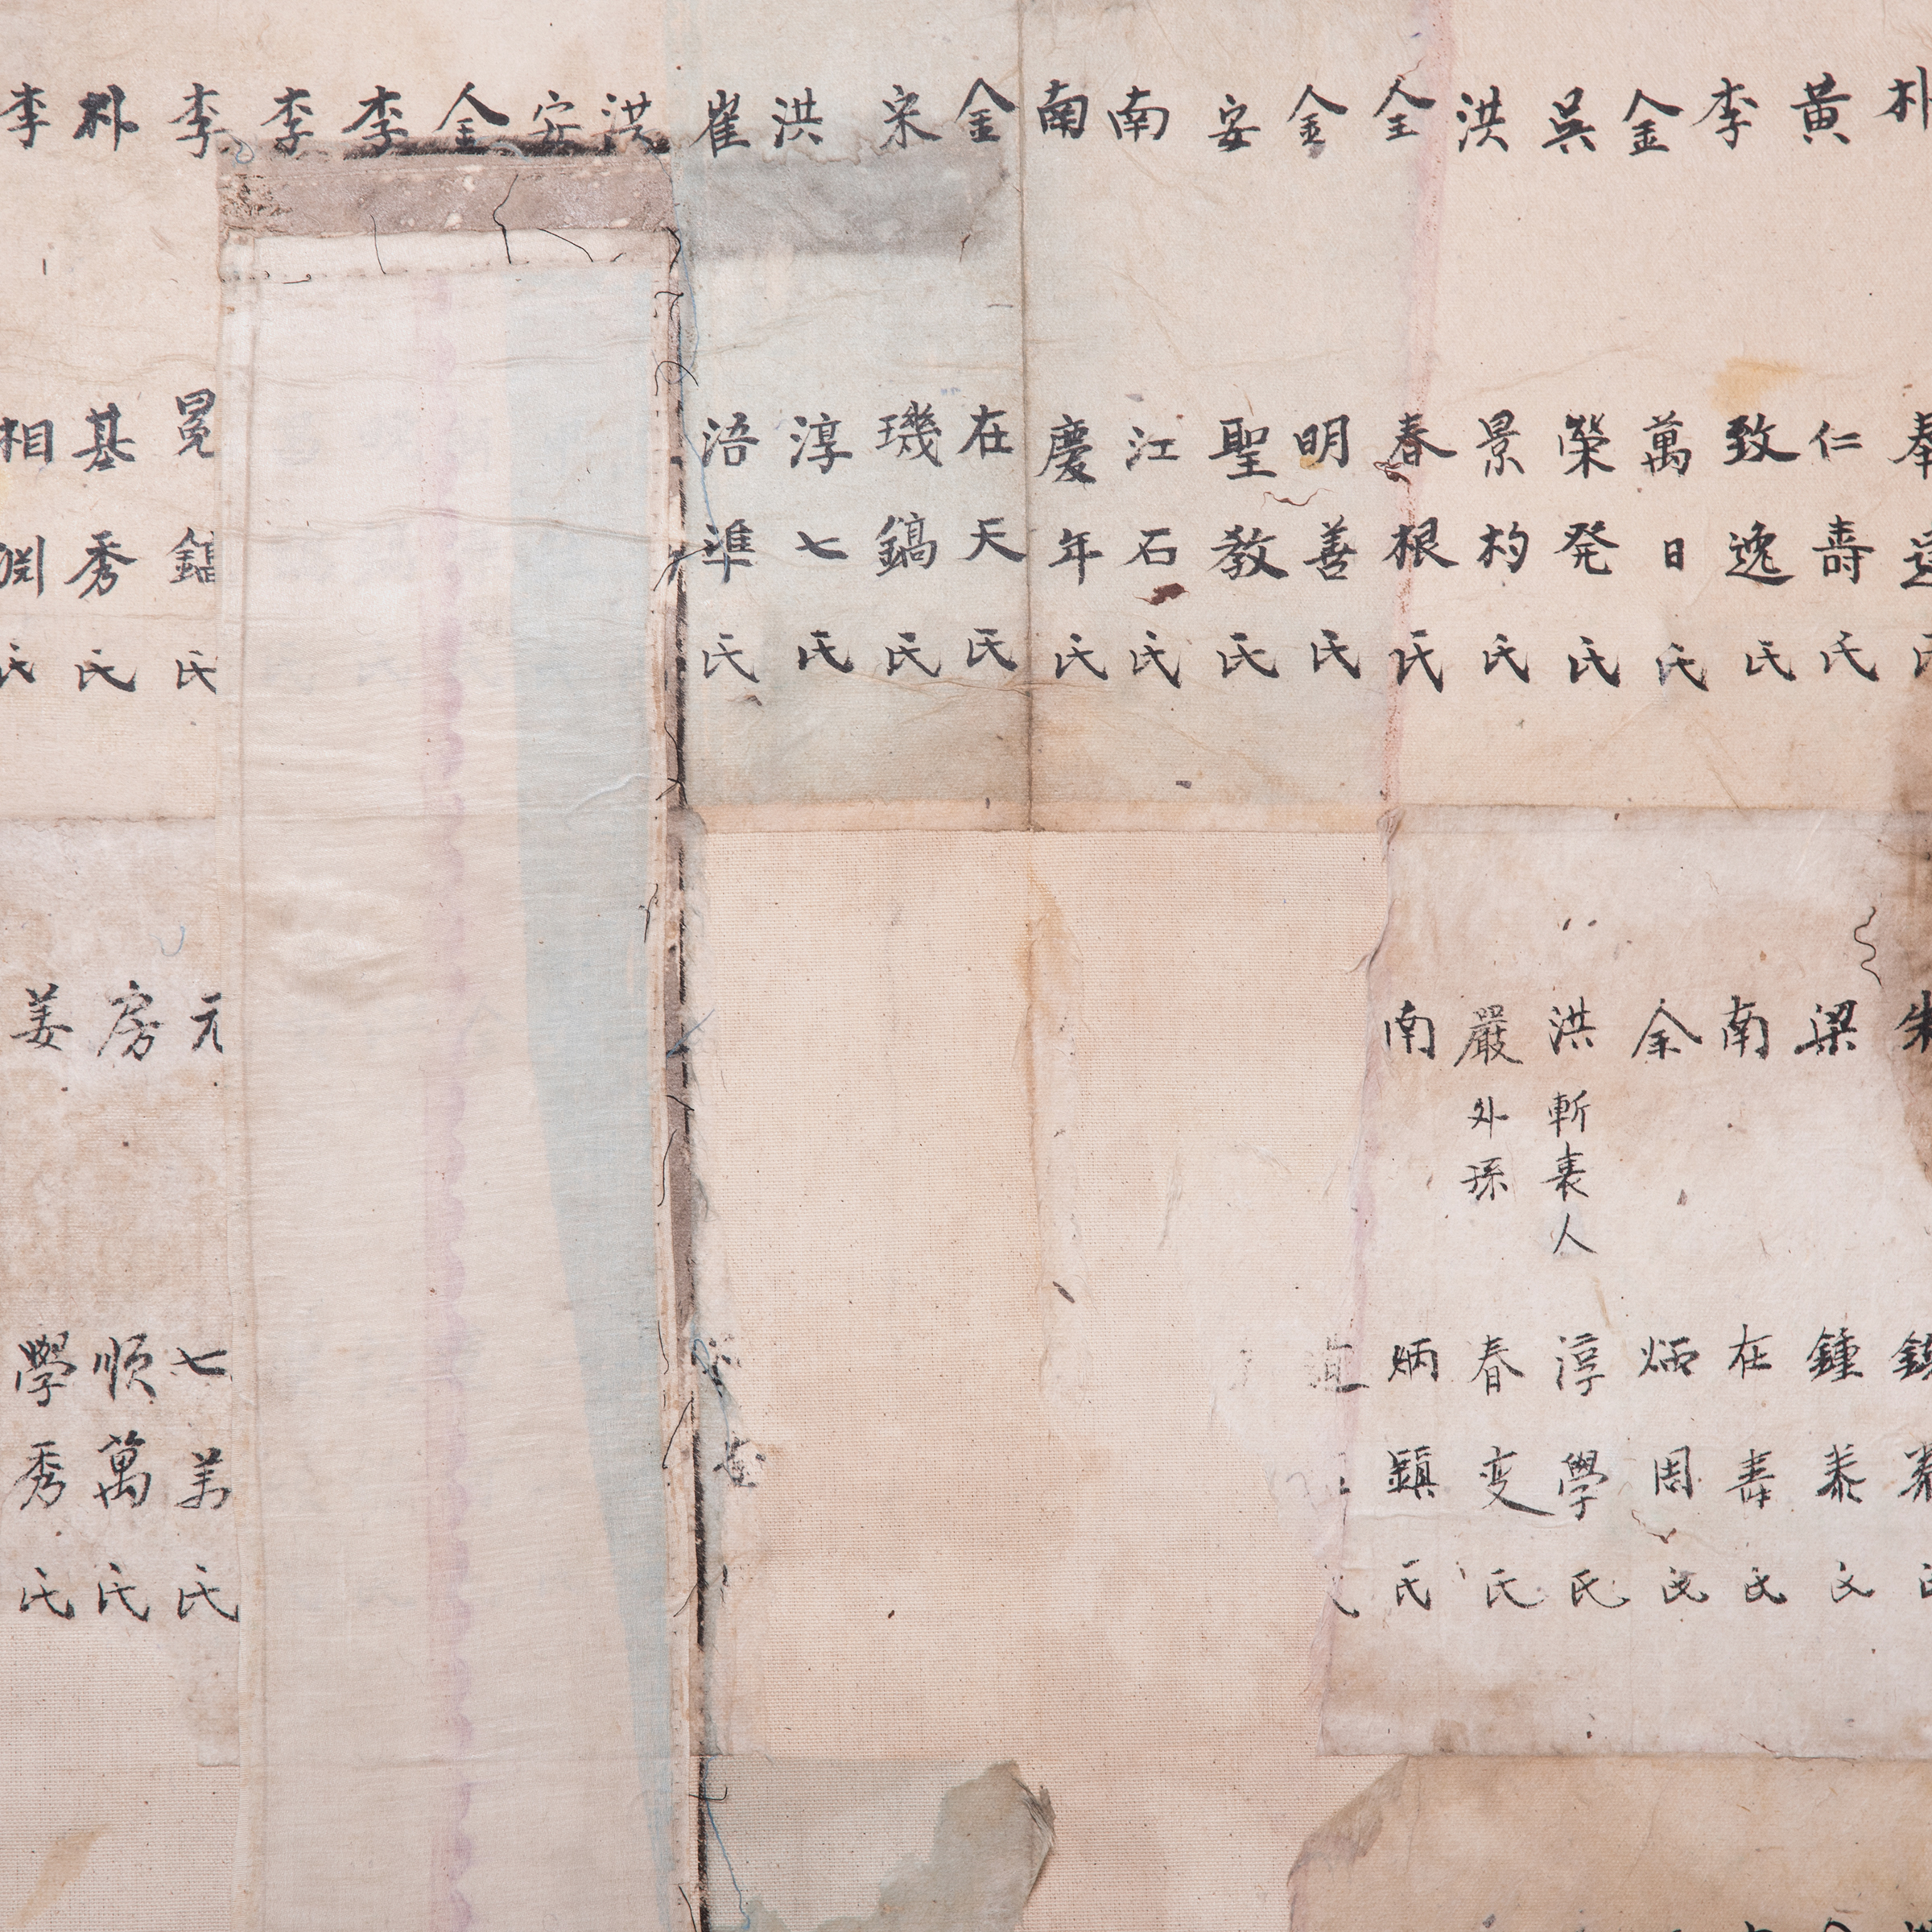 朴
黃 仁壽氏
李 致逸氏
金 萬日氏
吳 榮発氏
洪 景杓氏
全 春根氏
金 明善氏
安 聖教氏
南 江石氏
南 慶年氏
金 在天氏
宋 璣鎬氏
洪 淳七氏
崔 浯準氏
洪
安
金
李
李
李 冕鎬氏
朴 基秀氏
李 相渊氏
梁 鍾泰氏
南 在壽氏
余 炳周氏
洪 斬衰人 淳學氏
嚴 外孫 春变氏
南 炳鎮氏
元 七美氏
房 順萬氏
姜 學秀氏